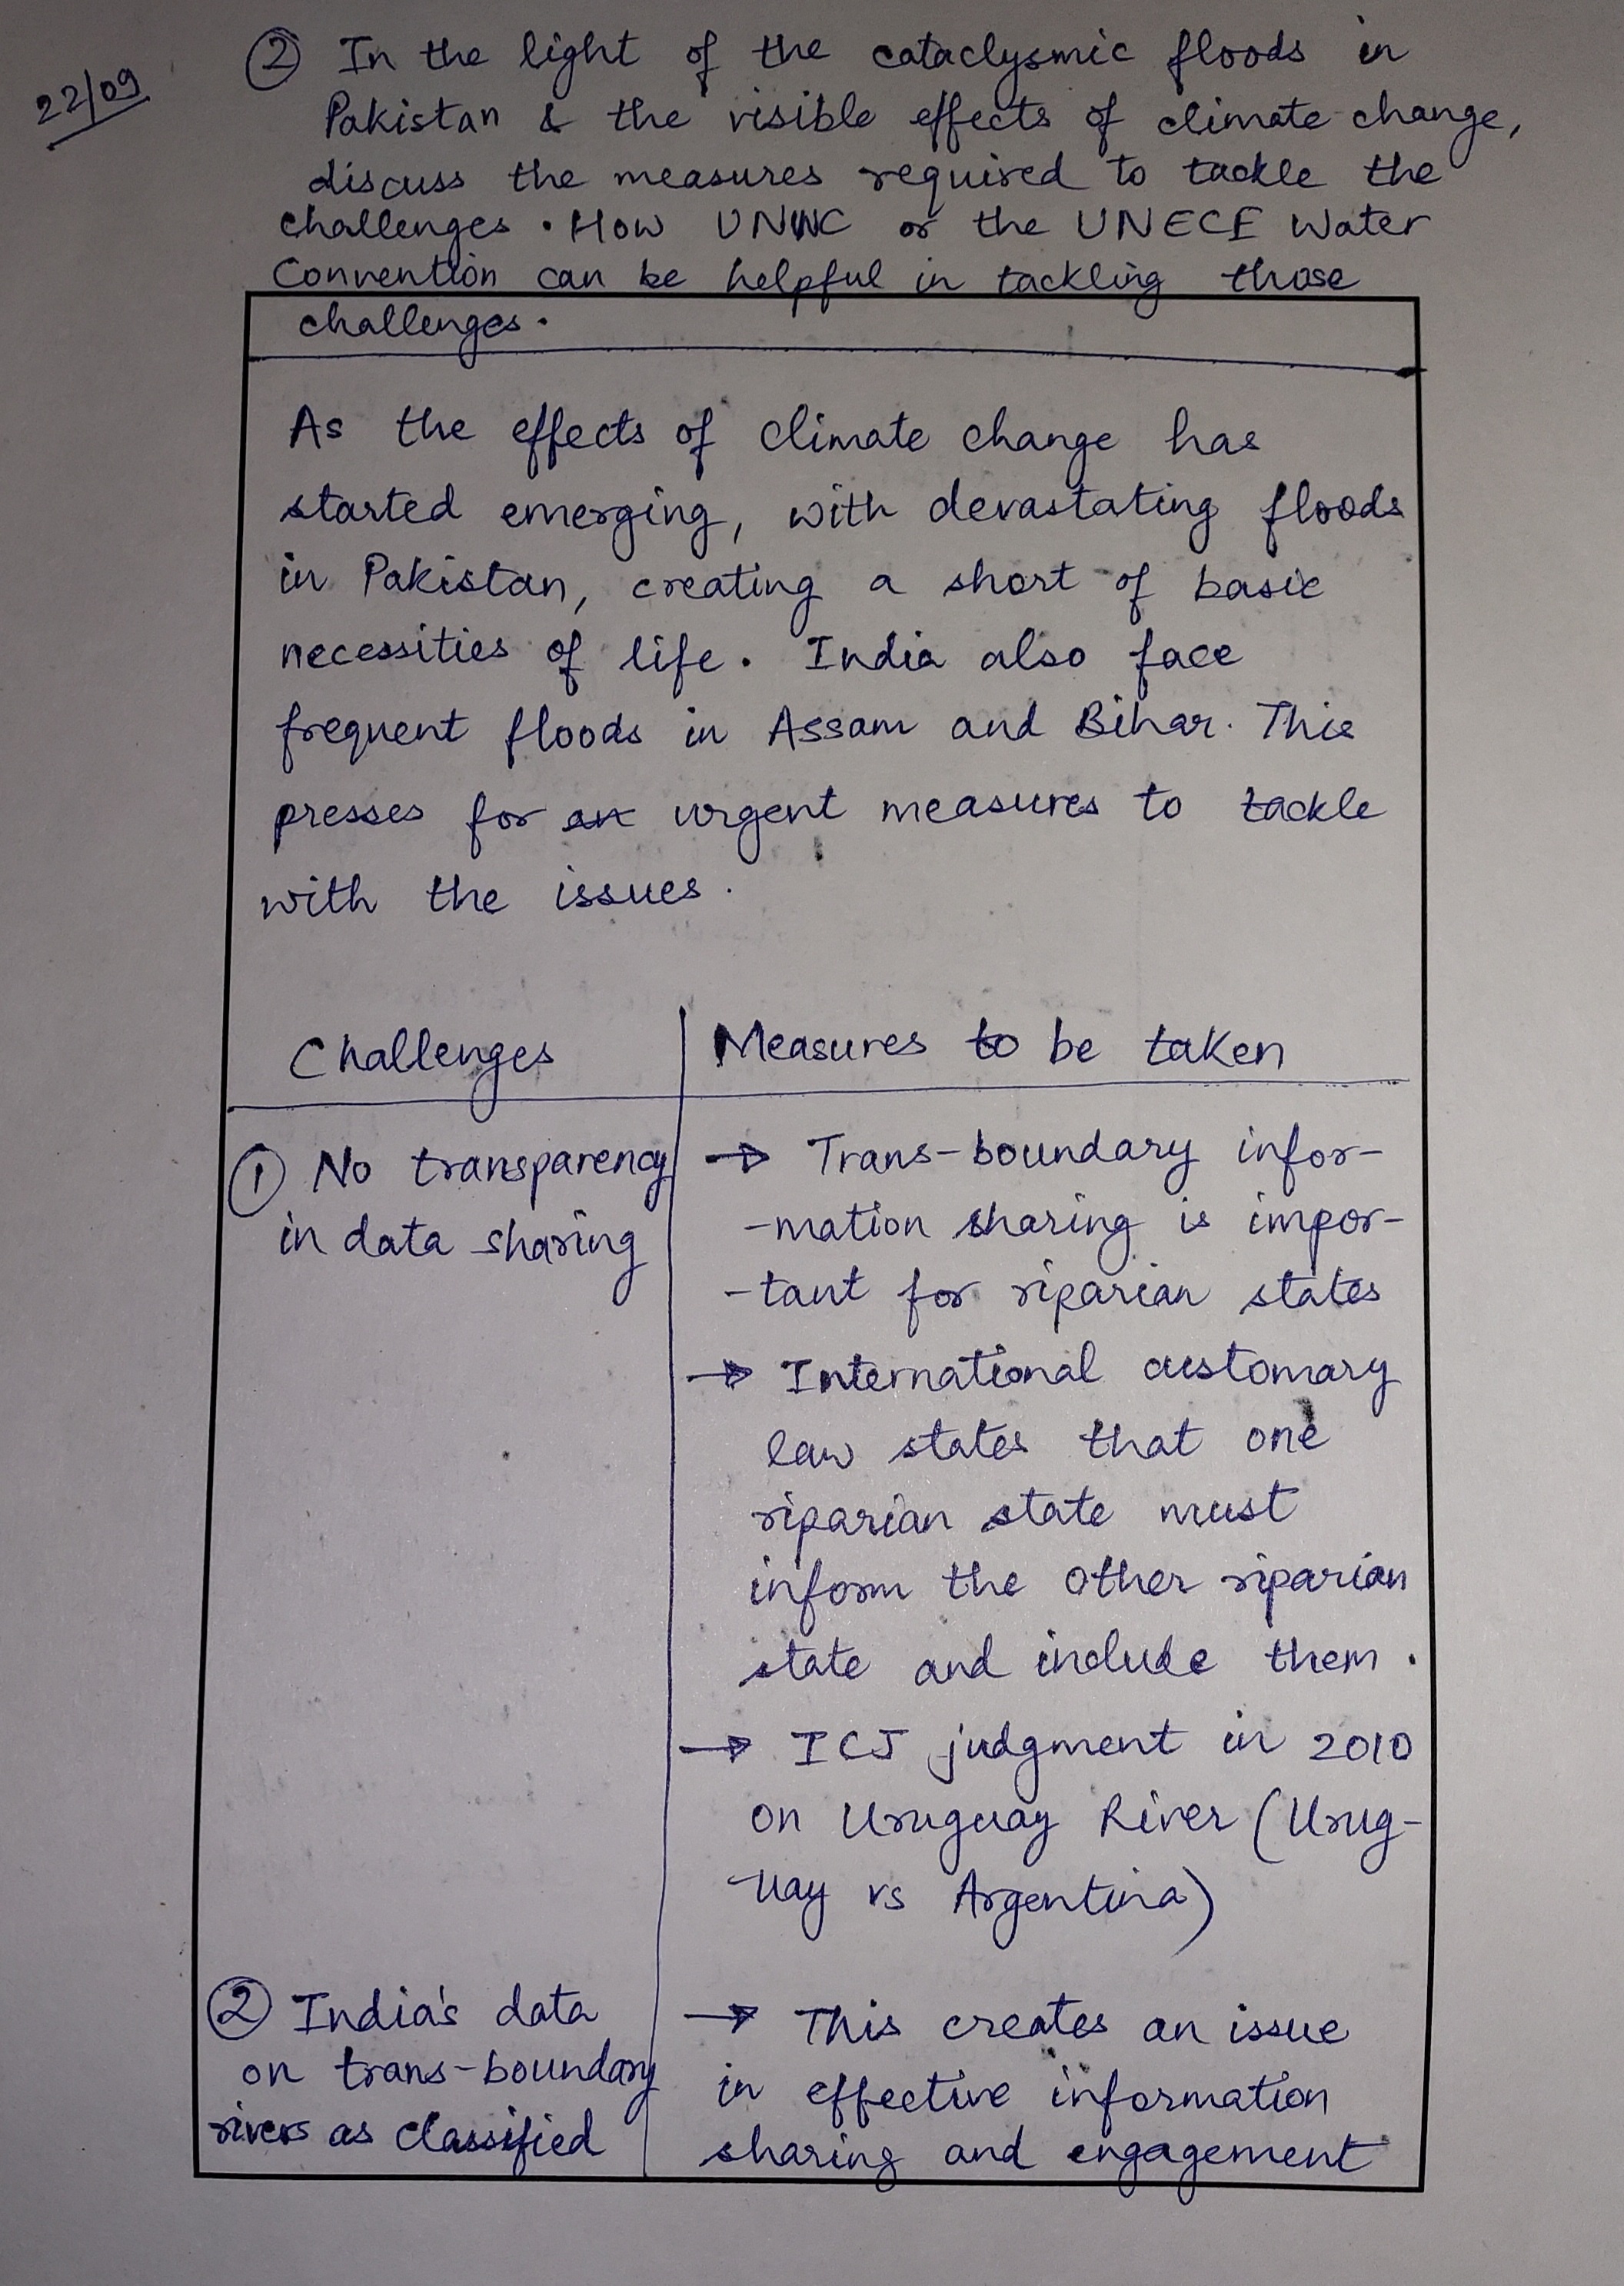 22/09
② In the light of the cataclysmic floods in
Pakistan & the visible effects of climate change,
discuss the measures required to tackle the
challenges. How UNWC or the UNECE Water
Convention can be helpful in tackling those
challenges.
As the effects of climate change has
started emerging, with devastating floods
in Pakistan, creating a short of basic
necessities of life. India also face
frequent floods in Assam and Bihar. This
presses for an urgent measures to tackle
with the issues.
Challenges
① No transparency
in data sharing
② India's data
on trans-boundary
rivers as classified
Measures to be taken
→ Trans-boundary infor-
-mation sharing is impor-
-tant for riparian states
→ International customary
law states that one
riparian state must
inform the other riparian
state and include them.
→ ICJ judgment in 2010
on Uruguay River (Urug-
-uay vs Argentina)
→ This creates an issue
in effective information
sharing and engagement